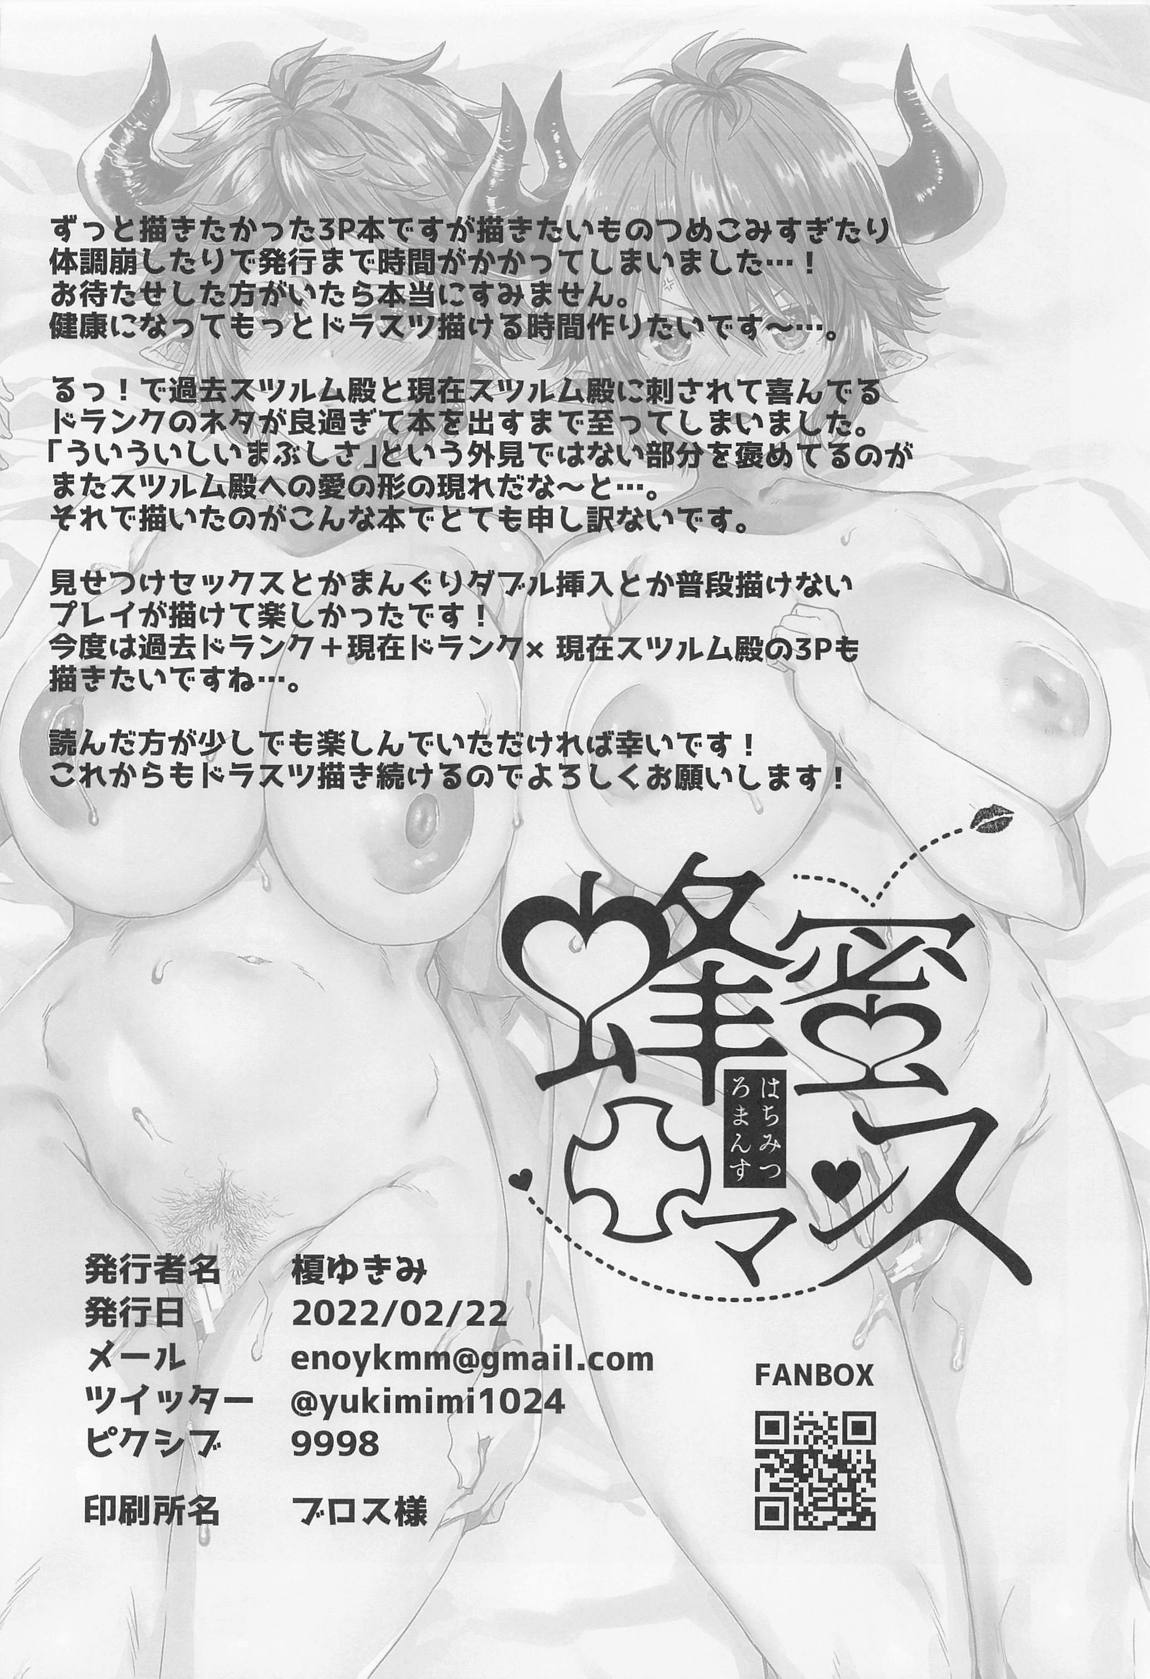 ずっと描きたかった3P本ですが描きたいものつめこみすぎたり
体調崩したりで発行まで時間がかかってしまいました…！
お待たせした方がいたら本当にすみません。
健康になってもっとドラスツ描ける時間作りたいです～…。
るっ！で過去スツルム殿と現在スツルム殿に刺されて喜んでる
ドランクのネタが良過ぎて本を出すまで至ってしまいました。
「ういういしいまぶしさ」という外見ではない部分を褒めてるのが
またスツルム殿への愛の形の現れだな～と…。
それで描いたのがこんな本でとても申し訳ないです。
見せつけセックスとかまんぐりダブル挿入とか普段描けない
プレイが描けて楽しかったです！
今度は過去ドランク＋現在ドランク× 現在スツルム殿の3Pも
描きたいですね…。
読んだ方が少しでも楽しんでいただければ幸いです！
これからもドラスツ描き続けるのでよろしくお願いします！
蜂蜜
ロマンス
はちみつ
ろまんす
発行者名 榎ゆきみ
発行日 2022/02/22
メール enoykmm@gmail.com
ツイッター @yukimimi1024
ピクシブ 9998
印刷所名 ブロス様
FANBOX